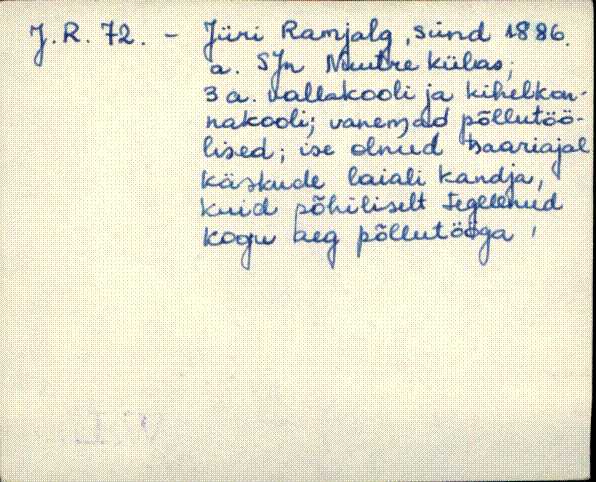 J.R. 72. - Jüri Ramjalg, sünd 1886.
a. SJn Nuutre külas;
3 a. vallakooli ja kihelkon-
nakooli; vanemad põllutöö-
lised; ise olnud tsaariajal
käskude laiali kandja,
kuid põhiliselt tegelenud
kogu aeg põllutööga